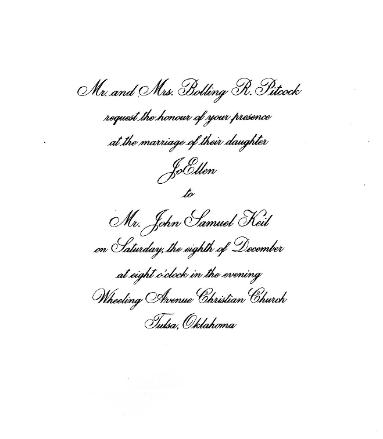 Mr. and Mrs. Bolling R. Pitcock
request the honour of your presence
at the marriage of their daughter
JoEllen
to
Mr. John Samuel Keil
on Saturday, the eighth of December
at eight o'clock in the evening
Wheeling Avenue Christian Church
Tulsa, Oklahoma